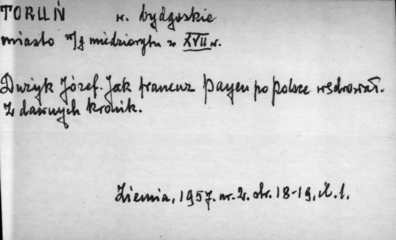 TORUŃ w. bydgoskie
miasto w/g miedziorytu z XVII w.
Dużyk Józef. Jak francuz Payen po Polsce wędrował.
Z dawnych kronik.
Ziemia, 1957. nr. 2. str. 18-19, il. 1.